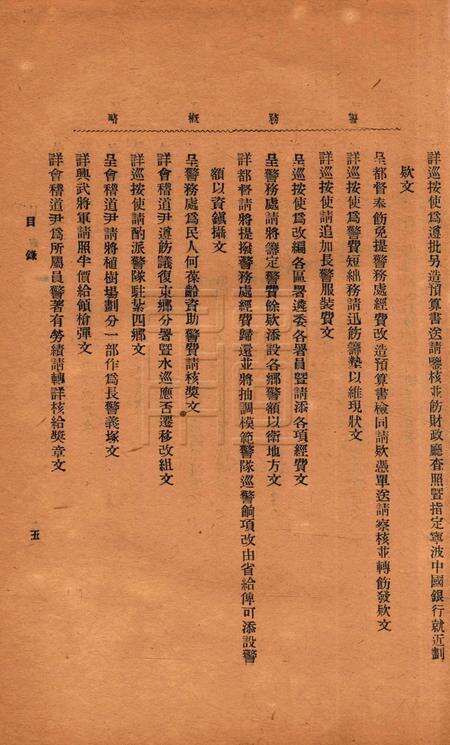 警務概略
詳巡按使爲遵批另造預算書送請鑒核並飭財政廳查照暨指定寧波中國銀行就近劃
欵文
呈都督奉飭免提警務處經費改造預算書檢同請欵憑單送請察核並轉飭發欵文
詳巡按使爲警費短絀務請迅飭籌墊以維現狀文
詳巡按使請追加長警服裝費文
呈巡按使爲改編各區署遴委各署員暨請添各項經費文
呈警務處請將籌定警費餘欵添設各鄉警額以衛地方文
詳都督請將提撥警務處經費歸還並將抽調模範警隊巡警餉項改由省給俾可添設警
額以資鎮攝文
呈警務處爲民人何葆齡資助警費請核奬文
詳會稽道尹遵飭議復東鄉分署暨水巡應否遷移改組文
詳巡按使請酌派警隊駐紮四鄉文
呈會稽道尹請將植樹場劃分一部作爲長警義塚文
詳興武將軍請照半價給領槍彈文
詳會稽道尹爲所屬員警著有勞績請轉詳核給奬章文
目錄
五